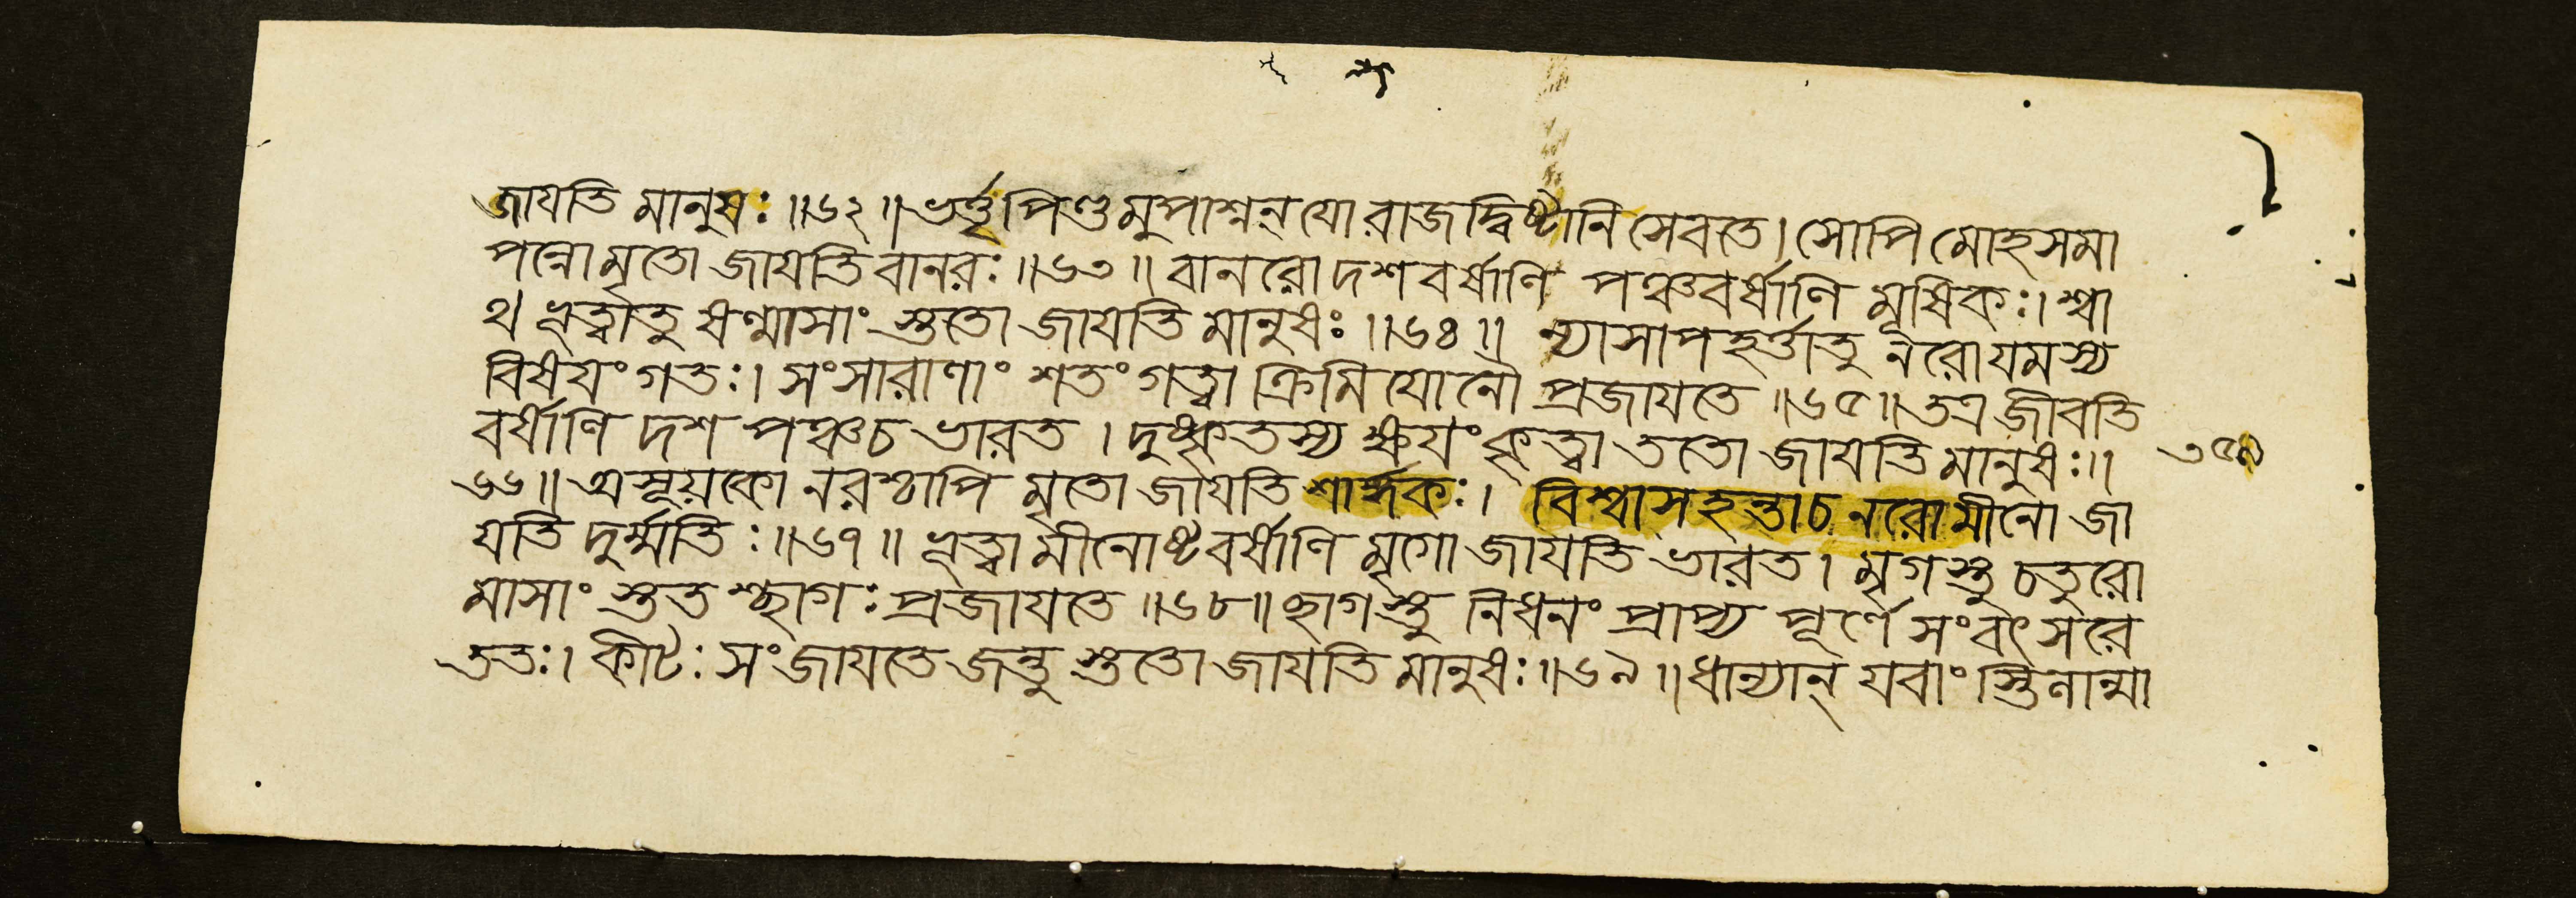 জাযতি মানুষঃ॥৬২॥ভর্ত্তৃপিণ্ডমুপাশ্নন্ যো রাজদ্বিষ্টানি সেবতে। সোপি মোহসমা
পন্নো মৃতো জাযতি বানরঃ॥৬৩॥ বানরো দশ বর্ষাণি পঞ্চবর্ষাণি মূষিকঃ। শ্বা
থ ভূত্বা তু ষণ্মাসাং স্ততো জাযতি মানুষঃ॥৬৪॥ ন্যাসাপহর্ত্তা তু নরো যমস্য
বিষযং গতঃ। সংসারাণাং শতং গত্বা ক্রিমিযোনৌ প্রজাযতে॥৬৫॥তত্র জীবতি
বর্ষাণি দশ পঞ্চ চ ভারত। দুষ্কৃতস্য ক্ষযং কৃত্বা ততো জাযতি মানুষঃ॥ ৩৫৯
৬৬॥ অসূয়কো নরশ্চাপি মৃতো জাযতি শার্ঙ্গকঃ। বিশ্বাসহন্তা চ নরো মীনো জা
যতি দুর্ম্মতিঃ॥৬৭॥ ভূত্বা মীনোষ্ট বর্ষাণি মৃগো জাযতি ভারত। মৃগস্তু চতুরো
মাসাং স্তত শ্ছাগঃ প্রজাযতে॥৬৮॥ছাগস্তু নিধনং প্রাপ্য পূর্ণে সংবৎসরে
ততঃ। কীটঃ সংজাযতে জন্তু স্ততো জাযতি মানুষঃ॥৬৯॥ধান্যান্ যবাং স্তিলান্মা